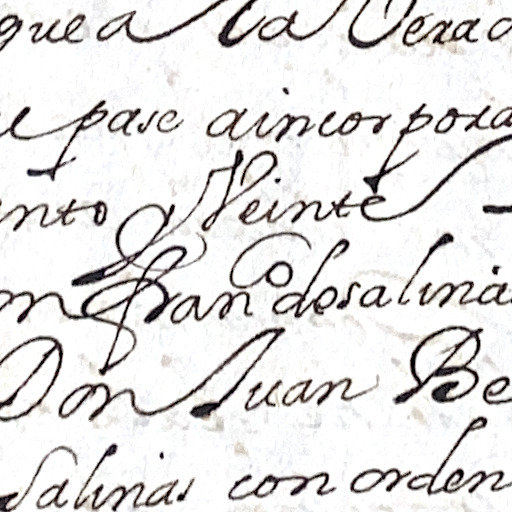 que a la Vera
pase aincorpora
ento y Veinte
on Fran.co desalinas
Don Juan Be
Salinas con orden